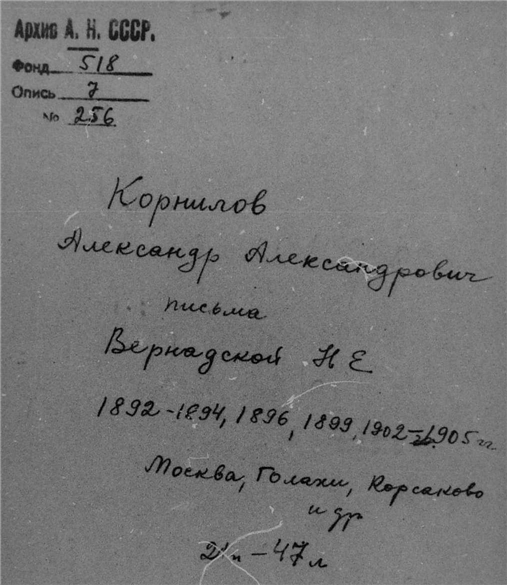 Архив А. Н. СССР.
Фонд 518
Опись 7
№ 256
Корнилов
Александр Александрович
письма
Вернадской Н Е
1892-1894, 1896, 1899, 1902-1905 гг.
Москва, Голахи, Корсаково
и др
47 л